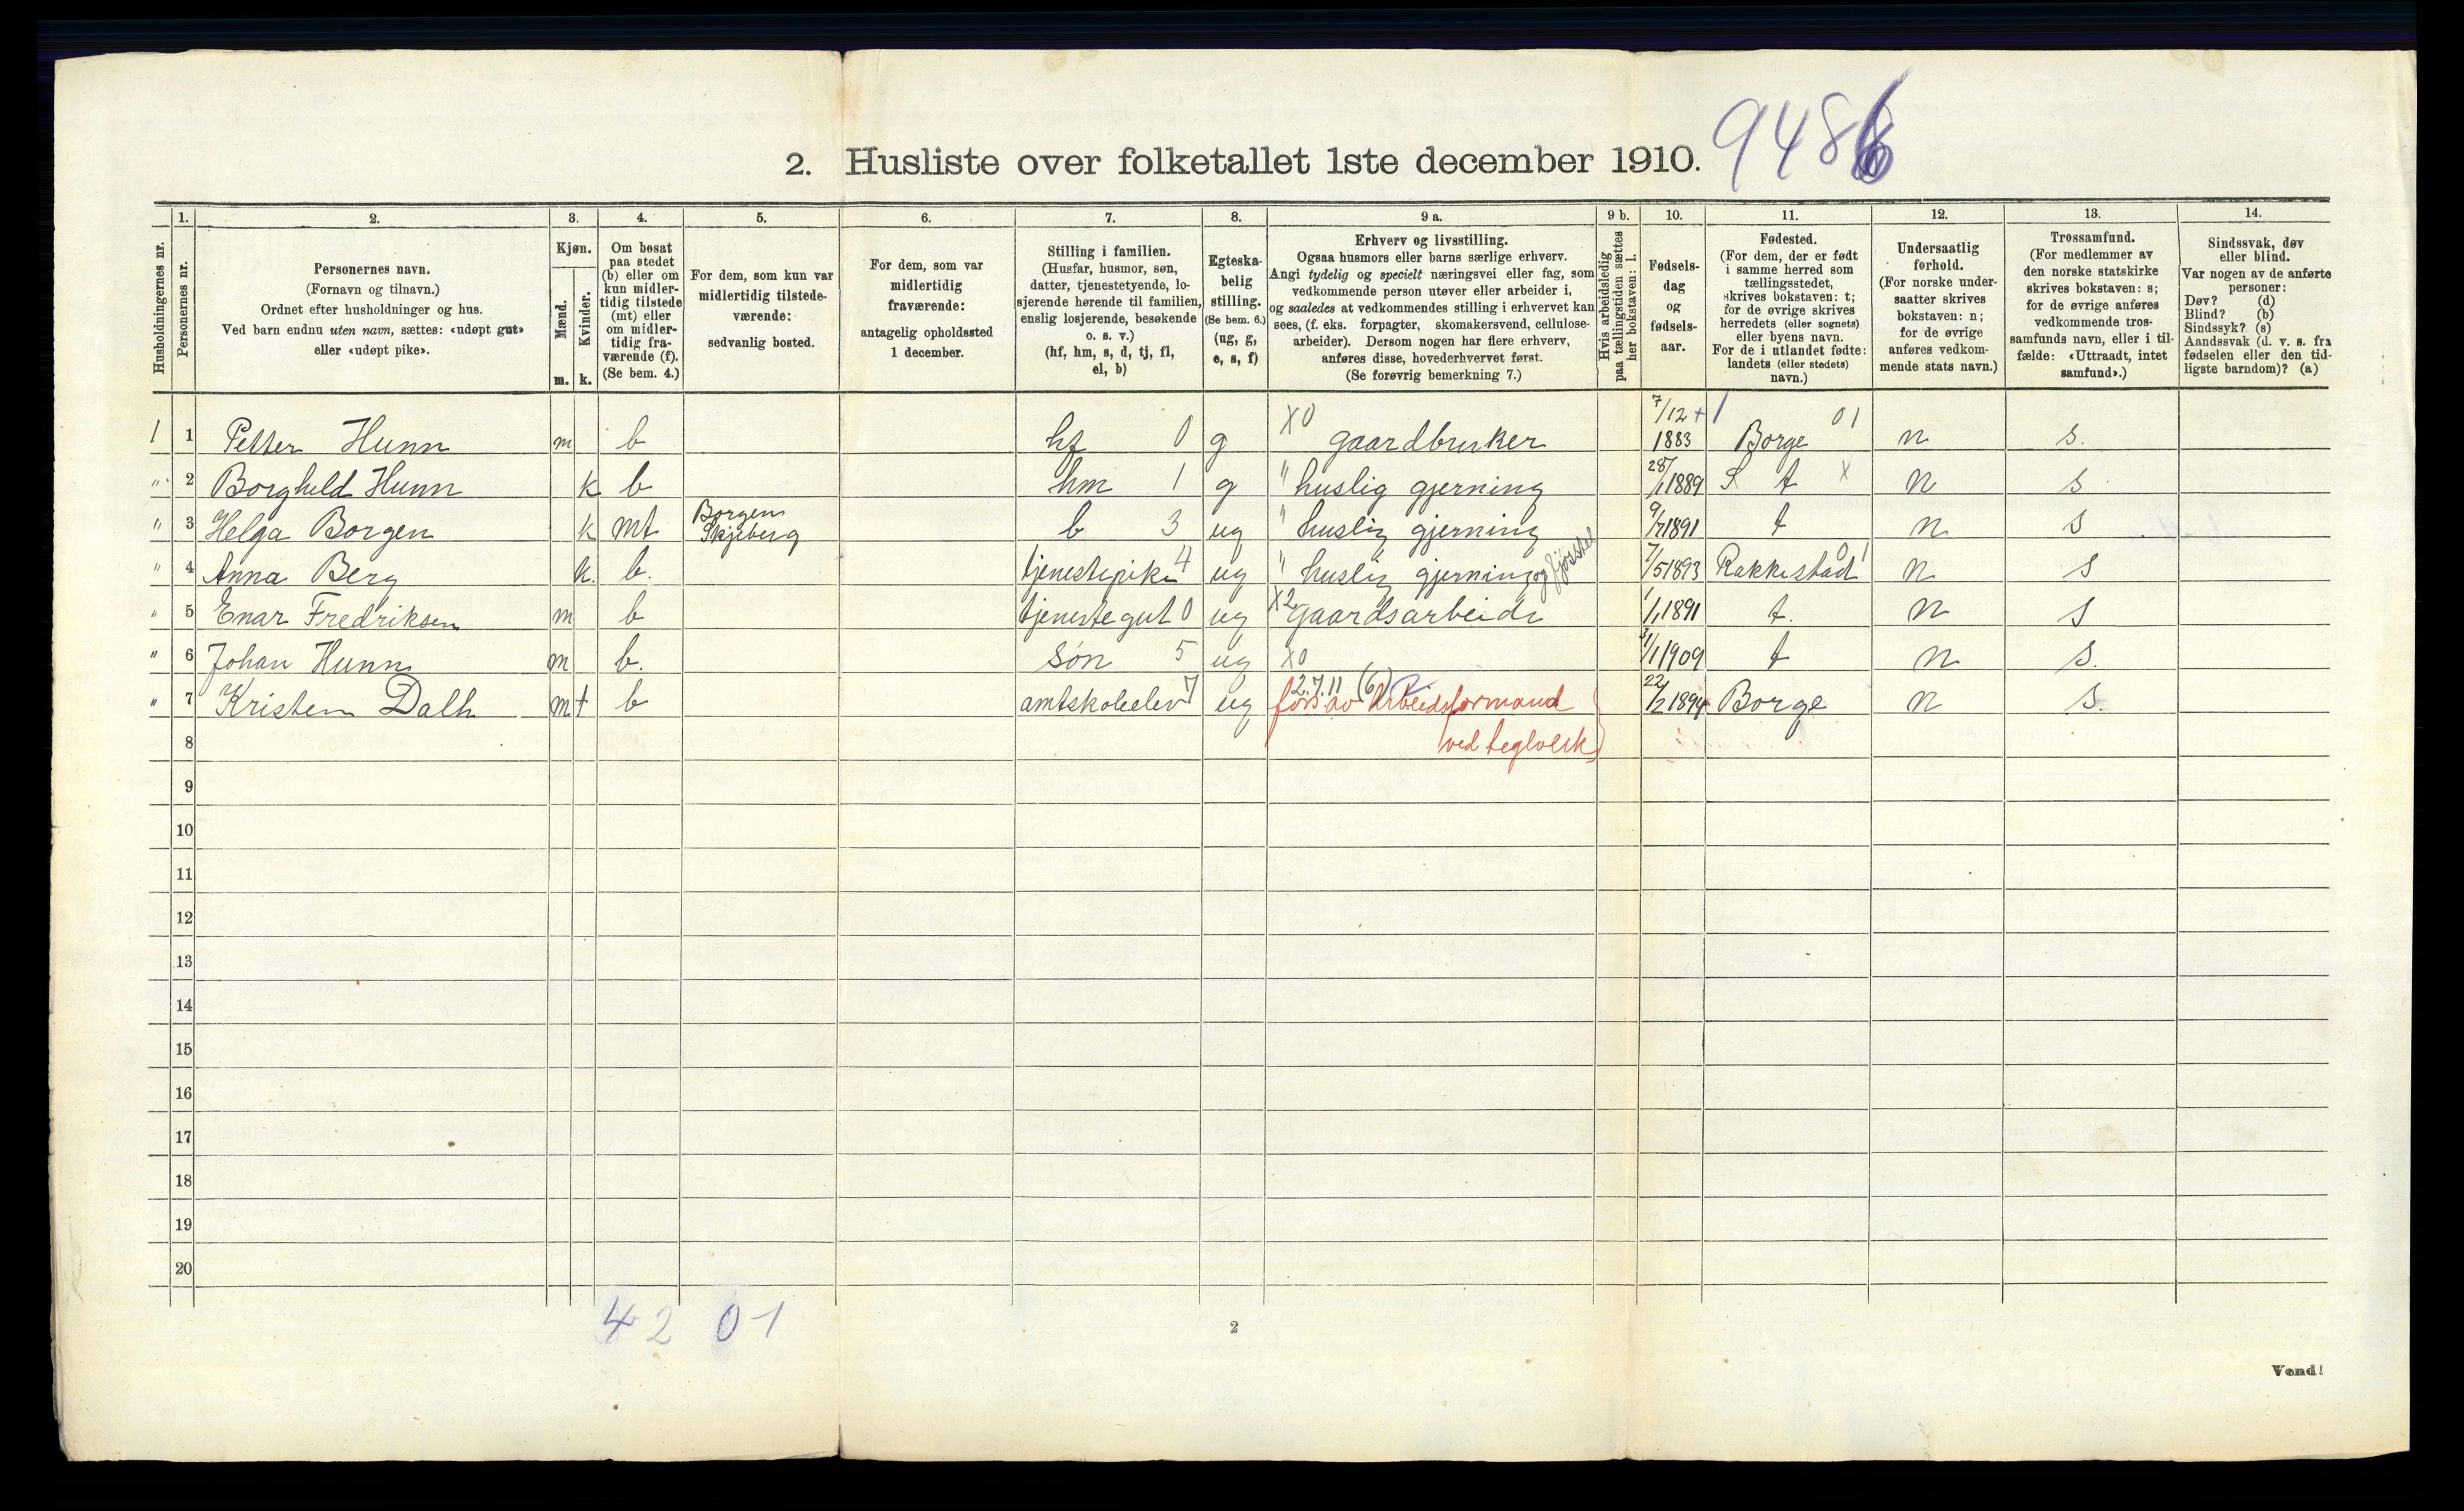 2. Husliste over folketallet 1ste december 1910. 9486
1. 2. 3. 4. 5. 6. 7. 8. 9 a. 9 b. 10. 11. 12. 13. 14.
Husholdningernes nr.
Personernes nr.
Personernes navn.
(Fornavn og tilnavn.)
Ordnet efter husholdninger og hus.
Ved barn endnu uten navn, sættes: «udøpt gut»
eller «udøpt pike».
Kjøn.
Mænd.
Kvinder.
m. k.
Om bosat
paa stedet
(b) eller om
kun midler-
tidig tilstede
(mt) eller
om midler-
tidig fra-
værende (f).
(Se bem. 4.)
For dem, som kun var
midlertidig tilstede-
værende:
sedvanlig bosted.
For dem, som var
midlertidig
fraværende:
antagelig opholdssted
1 december.
Stilling i familien.
(Husfar, husmor, søn,
datter, tjenestetyende, lo-
sjerende hørende til familien,
enslig losjerende, besøkende
o. s. v.)
(hf, hm, s, d, tj, fl,
el, b)
Egteska-
belig
stilling.
(Se bem. 6.)
(ug, g,
e, s, f)
Erhverv og livsstilling.
Ogsaa husmors eller barns særlige erhverv.
Angi tydelig og specielt næringsvei eller fag, som
vedkommende person utøver eller arbeider i,
og saaledes at vedkommendes stilling i erhvervet kan
sees, (f. eks. forpagter, skomakersvend, cellulose-
arbeider). Dersom nogen har flere erhverv,
anføres disse, hovederhvervet først.
(Se forøvrig bemerkning 7.)
Hvis arbeidsledig
paa tællingstiden sættes
her bokstaven: l.
Fødsels-
dag
og
fødsels-
aar.
Fødested.
(For dem, der er født
i samme herred som
tællingsstedet,
skrives bokstaven: t;
for de øvrige skrives
herredets (eller sognets)
eller byens navn.
For de i utlandet fødte:
landets (eller stedets)
navn.)
Undersaatlig
forhold.
(For norske under-
saatter skrives
bokstaven: n;
for de øvrige
anføres vedkom-
mende stats navn.)
Trossamfund.
(For medlemmer av
den norske statskirke
skrives bokstaven: s;
for de øvrige anføres
vedkommende tros-
samfunds navn, eller i til-
fælde: «Uttraadt, intet
samfund».)
Sindssvak, døv
eller blind.
Var nogen av de anførte
personer:
Døv? (d)
Blind? (b)
Sindssyk? (s)
Aandssvak (d. v. s. fra
fødselen eller den tid-
ligste barndom)? (a)
1 1 Petter Hunn m b hf 0 g X0 gaardbruker 7/12 1883 + 1 Borge 01 n s.
" 2 Borghild Hunn k b hm 1 g " huslig gjerning 28/1 1889 S t x n s
" 3 Helga Borgen k mt Borgen Skjeberg b 3 ug " huslig gjerning 9/7 1891 t n s
" 4 Anna Berg k. b. tjenestepike 4 ug " huslig gjerning og fjøsstel 7/5 1893 Rakkestad 01 n s
" 5 Enar Fredriksen m b tjenestegut 0 ug X2 gaardsarbeide 1/1 1891 t. n s
" 6 Johan Hunn m b. søn 5 ug X0 31/1 1909 t n s.
" 7 Kristen Dalh mt b amtskoleelev 7 ug 2.7.11 (6) fors av Arbeidsformand 22/2 1894 Borge n s.
8 ved teglverk
9
10
11
12
13
14
15
16
17
18
19
20
42 01
2
Vend!